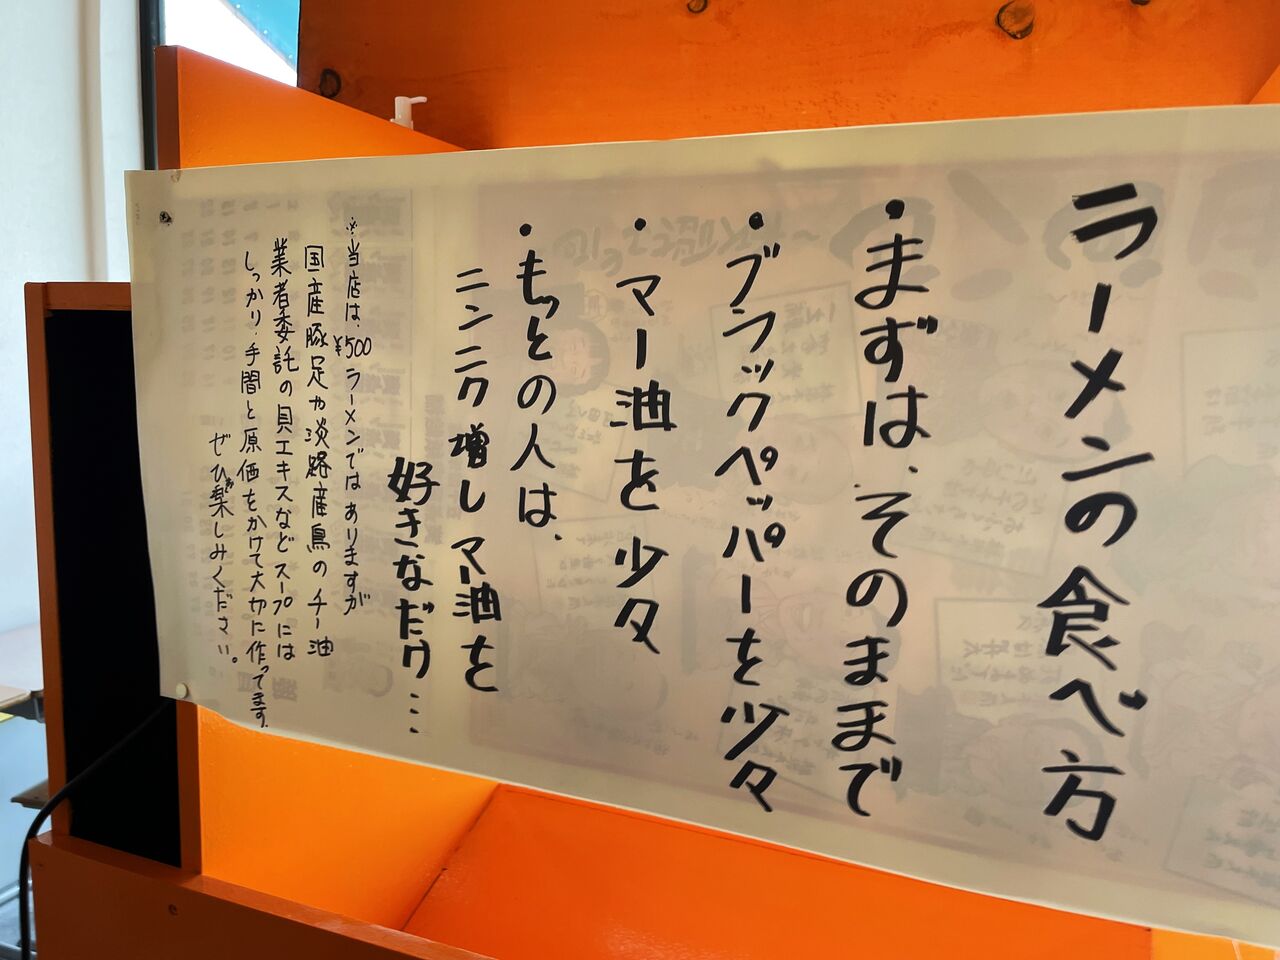 ラーメンの食べ方
・まずは、そのままで
・ブラックペッパーを少々
・マー油を少々
・もっとの人は、
ニンニク増しマー油を
好きなだけ…
※当店は、¥500ラーメンではありますが
国産豚足や淡路産鳥のチー油
業者委託の貝エキスなどスープには
しっかり手間と原価をかけて大切に作ってます。
ぜひお楽しみください。